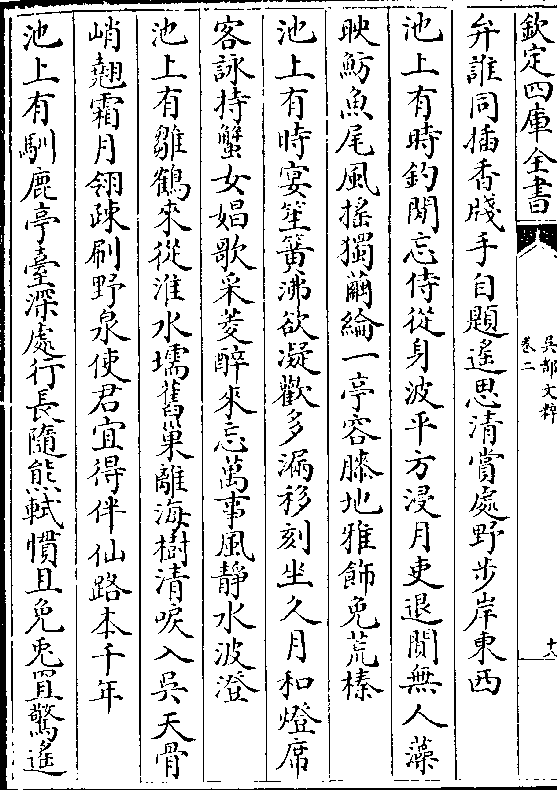 欽定四庫全書
吳都文粹
卷二
十六
弁誰同插香牋手自題遙思清賞處野步岸東西
池上有時釣閒忘侍從身波平方浸月吏退閒無人藻
映魴魚尾風搖獨繭綸一亭容膝地雅飾免荒榛
池上有時宴笙簧沸欲凝歡多漏移刻坐久月和燈席
客詠持蟹女娼歌采菱醉來忘萬事風靜水波澄
池上有雛鶴來從淮水壖舊巢離海樹清唳入吳天骨
峭翹霜月翎疎刷野泉使君宜得伴仙路本千年
池上有馴鹿亭臺深處行長隨熊軾慣且免兎罝驚遙